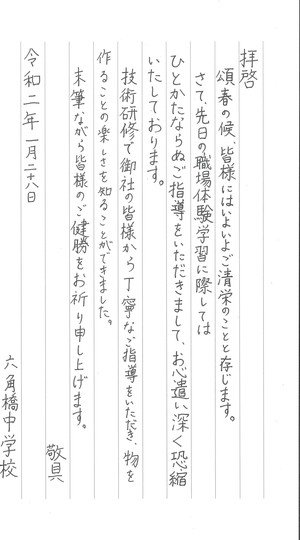 拝啓
頌春の候、皆様にはいよいよご清栄のことと存じます。
さて、先日の職場体験学習に際しては
ひとかたならぬご指導をいただきまして、お心遣い深く恐縮
いたしております。
技術研修で御社の皆様から丁寧なご指導をいただき、物を
作ることの楽しさを知ることができました。
末筆ながら皆様のご健勝をお祈り申し上げます。
敬具
令和二年一月二十八日
六角橋中学校